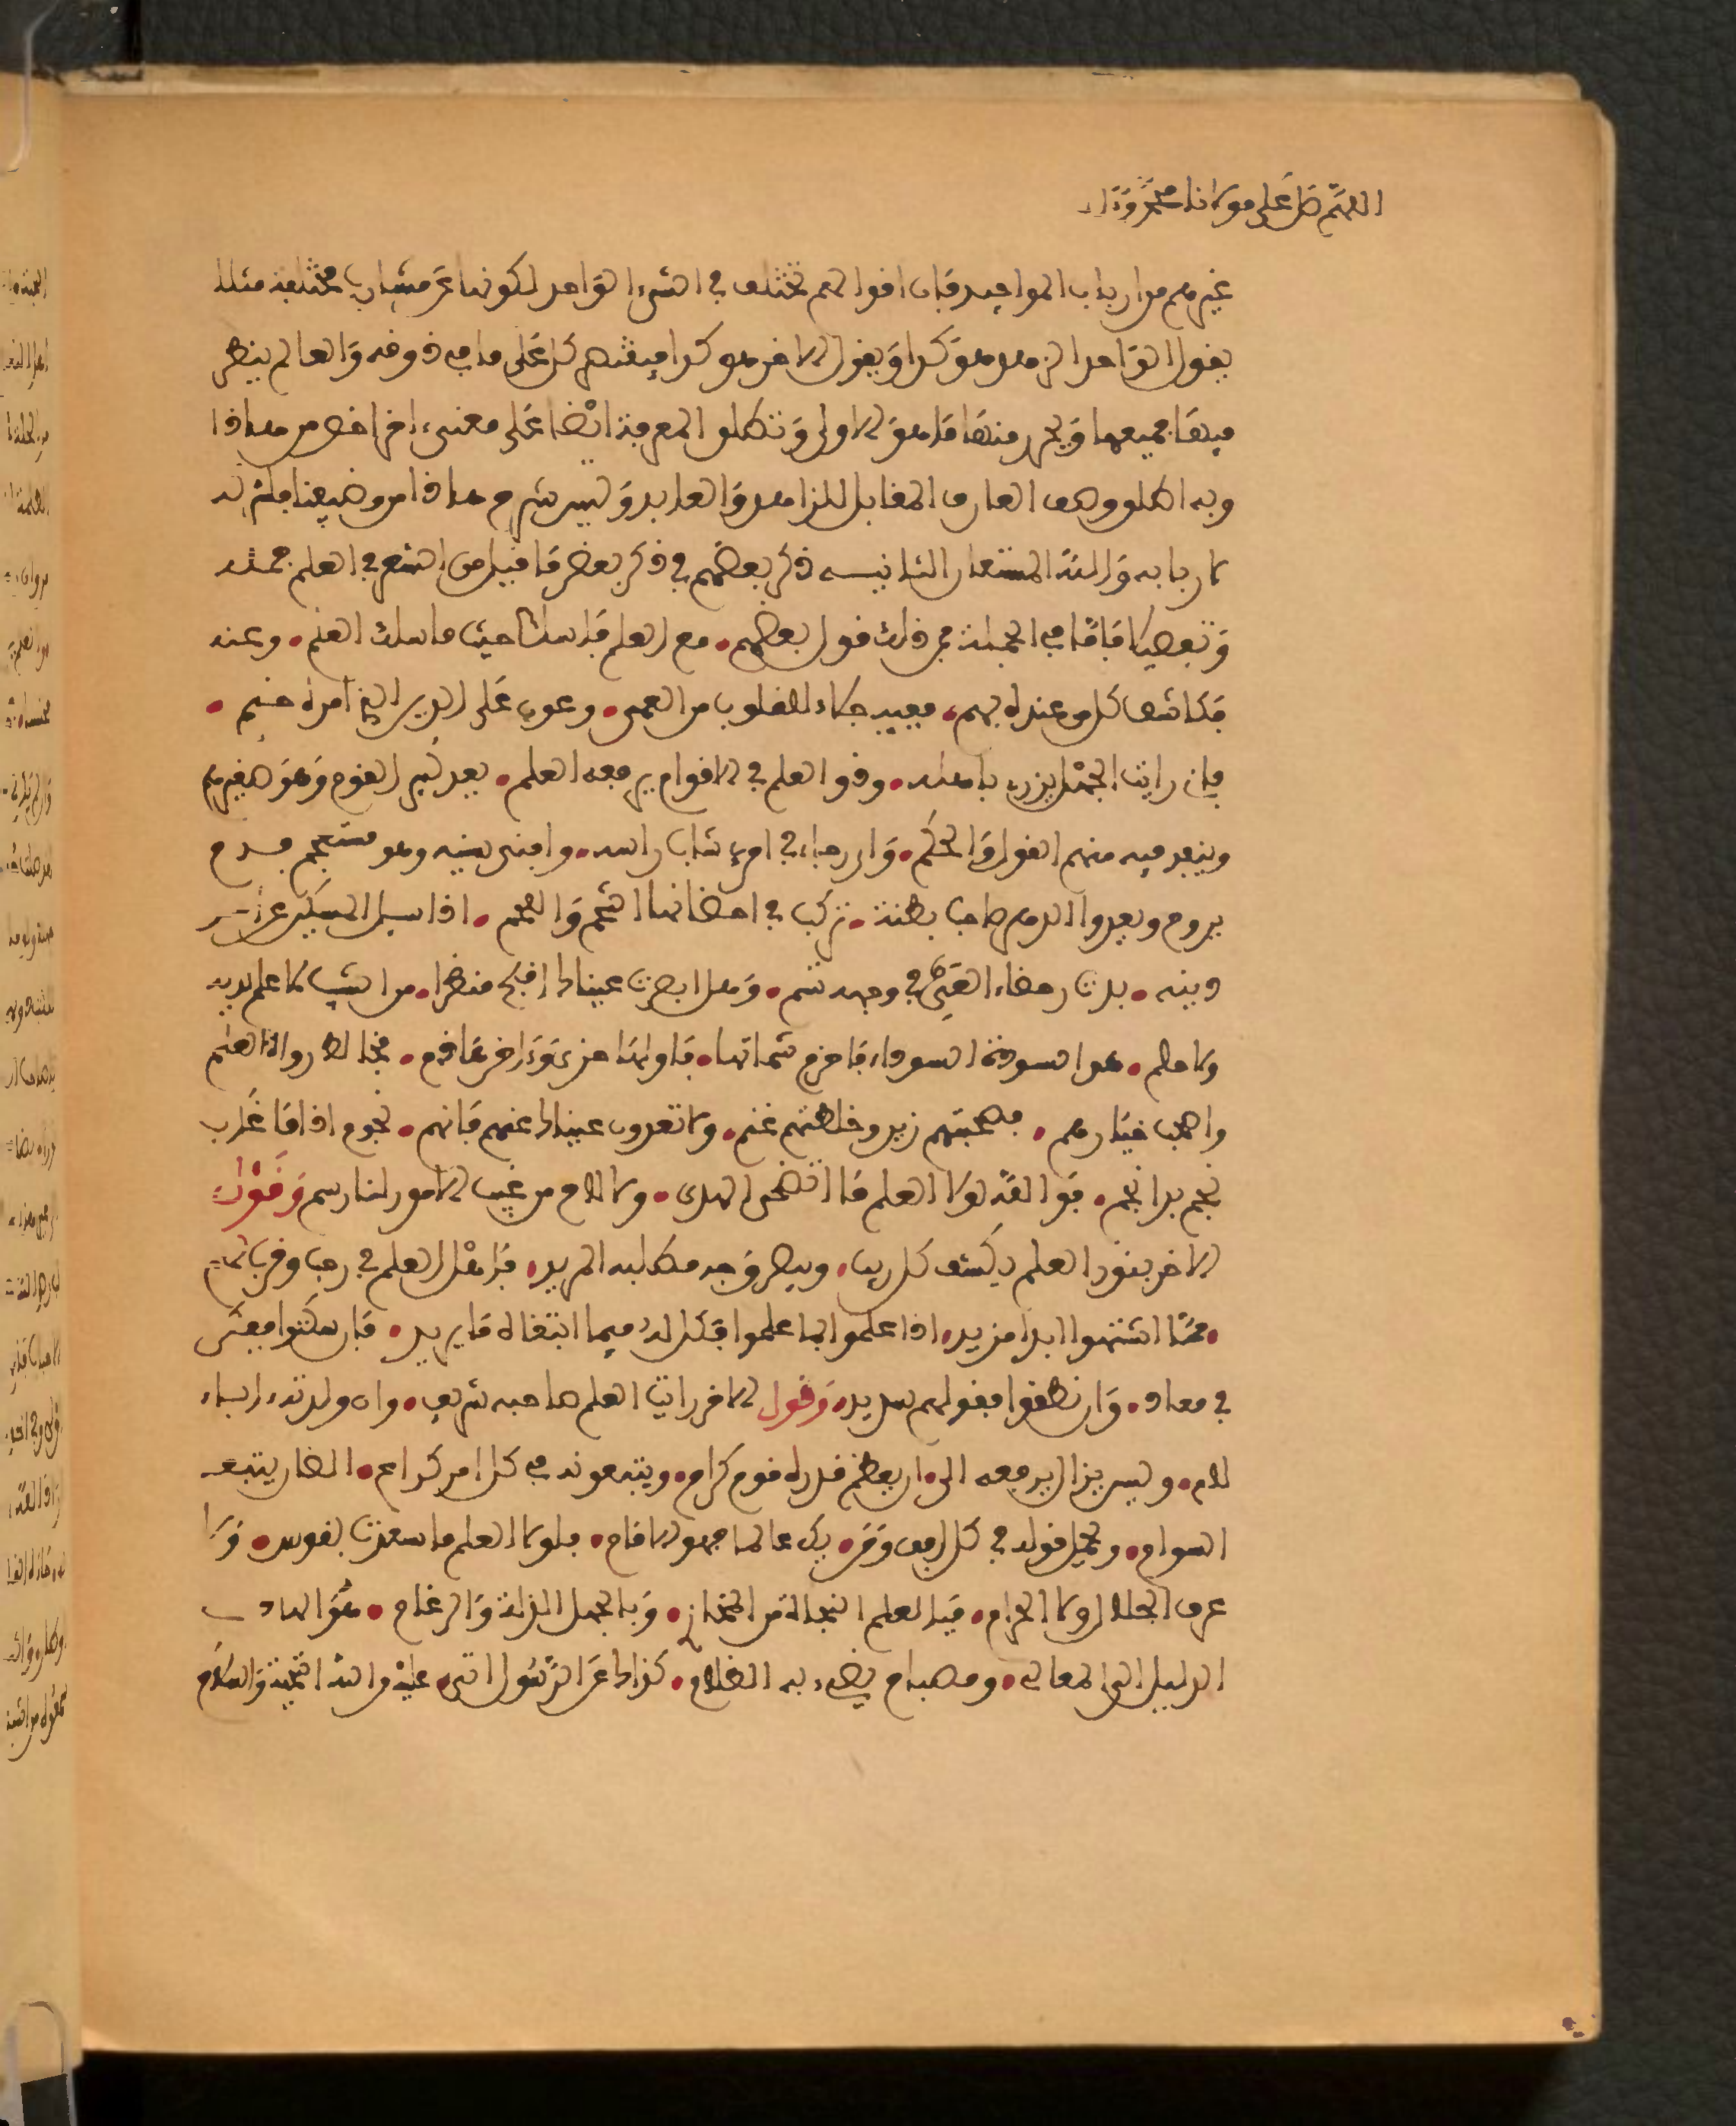 اللهم صل على مولانا محمد وآله
غيرهم من ارباب المواجيد فان اقوالهم تختلف في الشيء الواحد لكونها عن مشارب مختلفة مثلا
يقول الواحد الزهد هو كذا ويقول الاخر هو كذا فيقتصر كل على ما فيه ذوقه والعالم ينظر
فيها جميعها ويحرر منها ما هو الاولى وتطلق المعرفة ايضا على معنى اخر اخص من هذا
وبه اطلق وصف العارف المقابل للزاهد والعابد وليس شرح هذا من وضيفنا فلنتركه
لاربابه والله المستعان الثانية ذكر بعضهم في ذكر بعض ما قيل من الشعر في العلم جملة
وتفصيلا فاما في الجملة فمن ذلك قول بعضهم • مع العلم فاسلك حيث ما سلك العلم • وعنه
فكاشف كل من عنده فهم • ففيه جلاء للقلوب من العمى • وعون على الدين الذي امره حتم •
فاني رايت الجهل يزري باهله • وذو العلم في الاقوام يرفعه العلم • يعد كبير القوم وهو صغيرهم
وينفد فيه منهم القول والحكم • واي رجاء في امرئ شاب راسه • وافنى سنيه وهو مستعجم فدم
يروح ويغدوا الدهر صاحب بطنة • تركب في احضانها الشحم واللحم • اذا سئل المسكين عن امر
دينه • بدت رحضاء العي في وجهه تسم • وهل ابصرت عيناك اقبح منظرا • من اشيب لا علم لديه
ولا حلم • هي السوءة السوءاء فاحذر شماتها • فاولها خزي وءاخرها ذم • فخالط رواة العلم
واصحب خيارهم • فصحبتهم زين وخلطتهم غنم • ولا تعدون عيناك عنهم فانهم • نجوم اذا ما غاب
نجم بدا نجم • فوالله لولا العلم ما اتضح الهدى • ولا لاح من غيب الامور لنا رسم وقول
الاخر بنور العلم يكشف كل ريب • ويبصر وجه مطلبه المريد • فاهل العلم في رحب وقرب لهم
• مما اشتهوا ابدا مزيد • اذا علموا بما علموا فكل له فيما ابتغاه ما يريد • فان سكتوا ففكر
في معاد • وان نطقوا فقولهم سديد • وقول الاخر رايت العلم صاحبه شريف • وان ولدته ءاباء
لئام • وليس يزال يرفعه الى ان يعظم قدره قوم كرام • ويتبعونه في كل امر كراع • الضان يتبعه
السوام • ويحمل قوله في كل افق ومن يك عالما فهو الامام • فلولا العلم ما سعدت نفوس • ولا
عرف الحلال ولا الحرام • فبالعلم النجاة من المخازي • وبالجهل المذلة والرغام • هو الهادي
الدليل الى المعالي • ومصباح يضيء به الظلام • كذاك عن الرسول اتى عليه من الله التحية والسلام